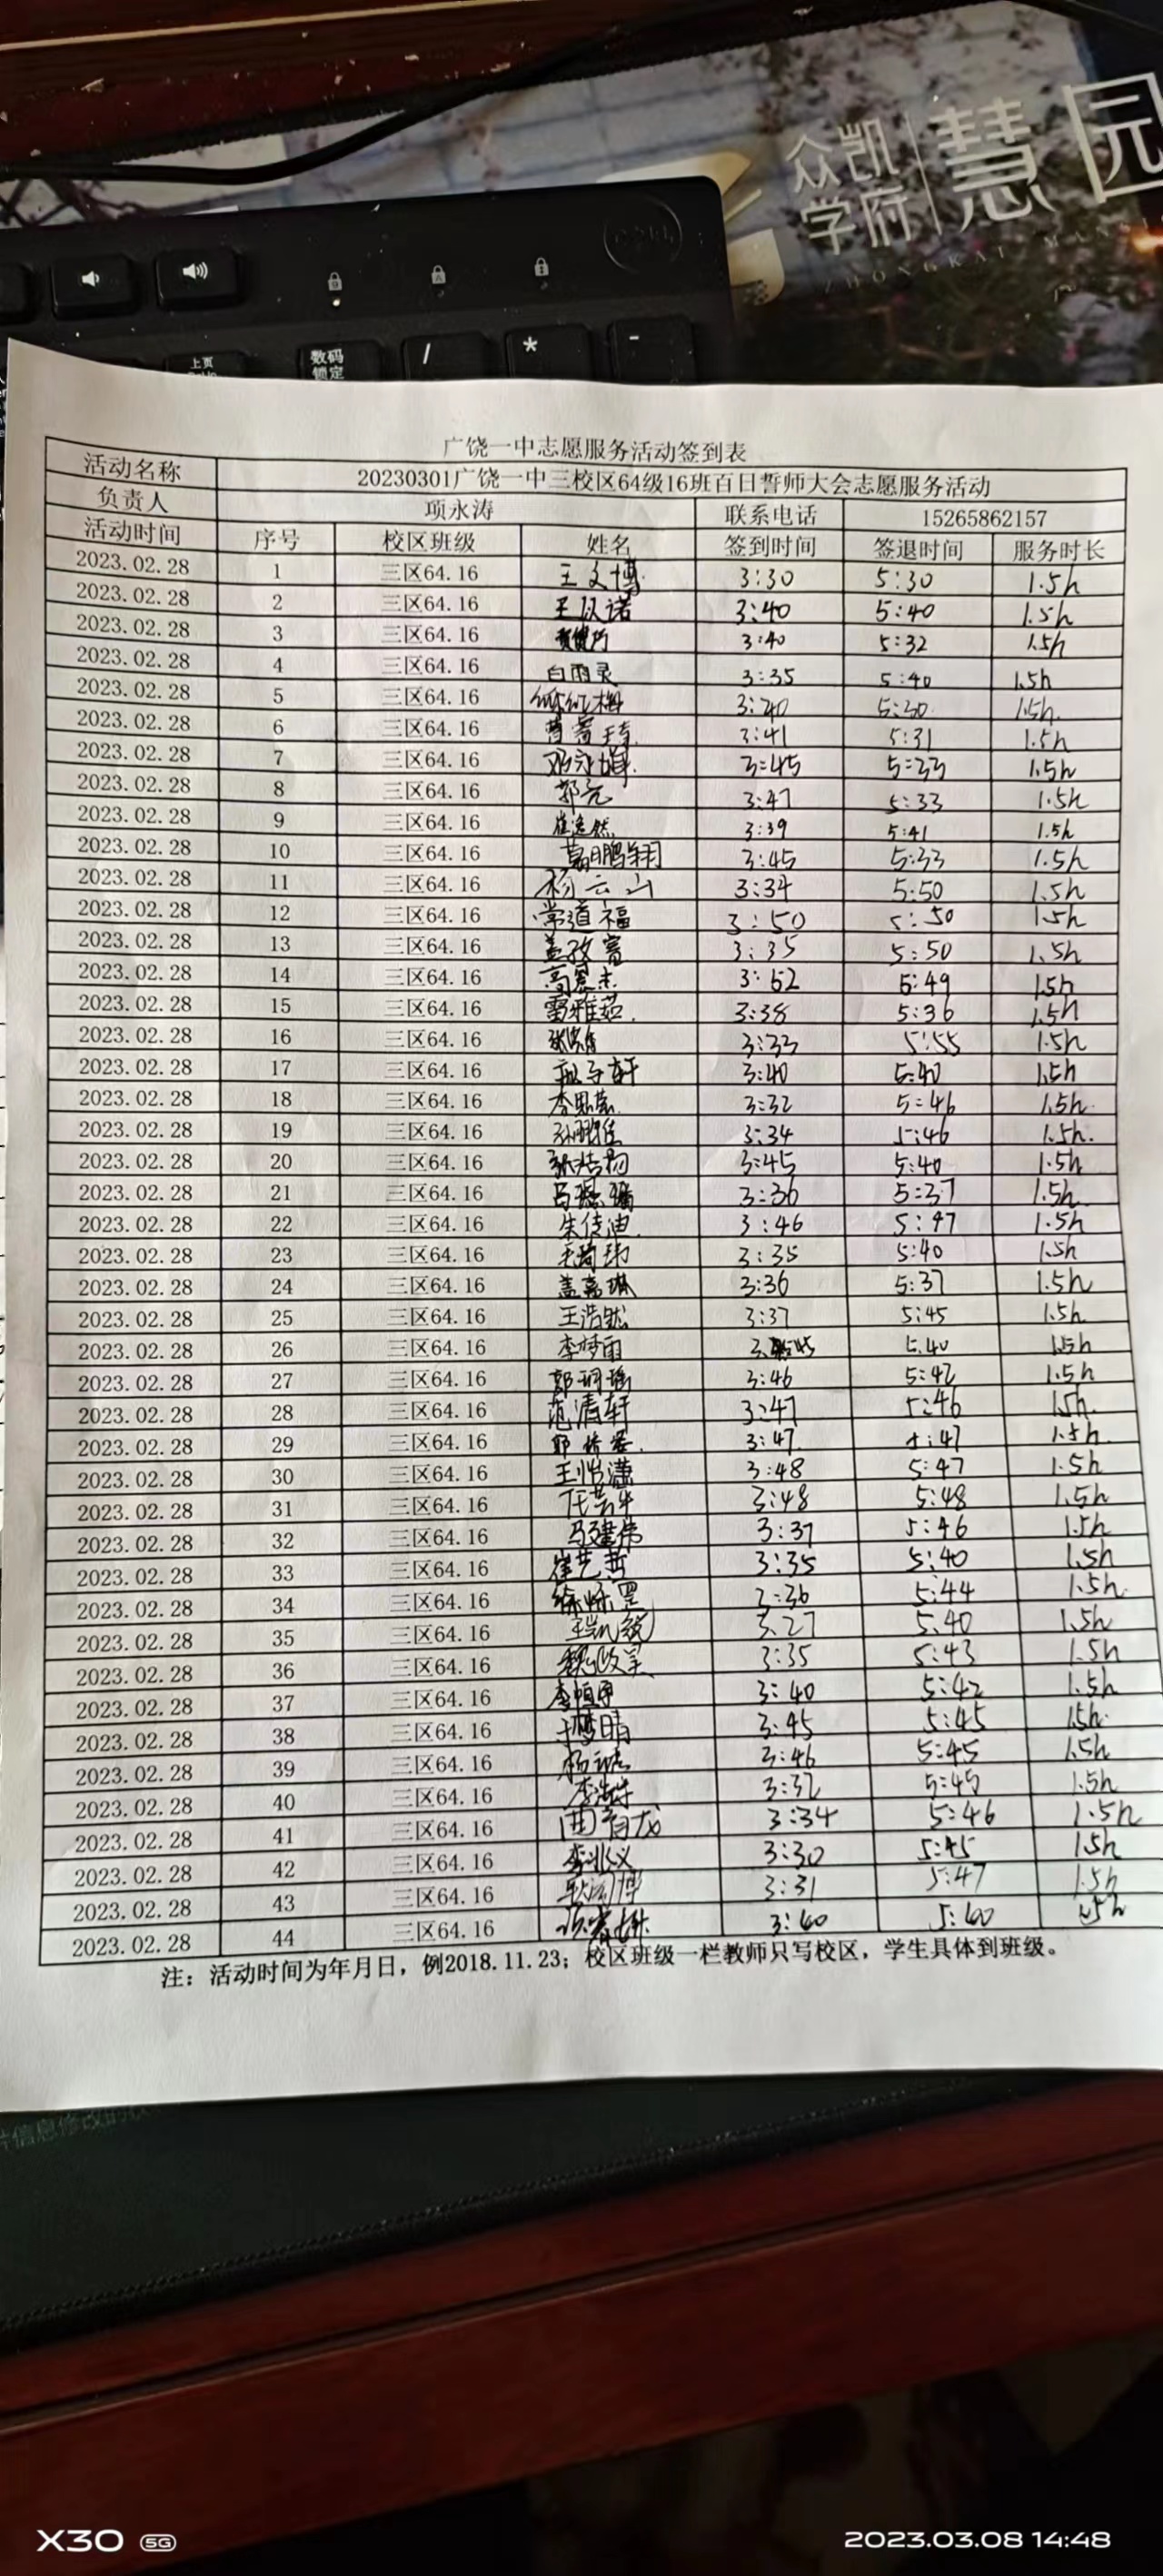 众凯
学府
慧园
ZHONGKAI MANSI
上页
数码
锁定
/
*
-
广饶一中志愿服务活动签到表
活动名称 20230301广饶一中三校区64级16班百日誓师大会志愿服务活动
负责人 项永涛 联系电话 15265862157
活动时间 序号 校区班级 姓名 签到时间 签退时间 服务时长
2023.02.28 1 三区64.16 王文博 3:30 5:30 1.5h
2023.02.28 2 三区64.16 3:40 5:40 1.5h
2023.02.28 3 三区64.16 3:40 5:32 1.5h
2023.02.28 4 三区64.16 白雨灵 3:35 5:40 1.5h
2023.02.28 5 三区64.16 1.5h
2023.02.28 6 三区64.16 3:41 5:31 1.5h
2023.02.28 7 三区64.16 3:45 5:33 1.5h
2023.02.28 8 三区64.16 郭亮 3:47 5:33 1.5h
2023.02.28 9 三区64.16 崔逸然 3:39 5:41 1.5h
2023.02.28 10 三区64.16 葛鹏翔 3:45 5:33 1.5h
2023.02.28 11 三区64.16 杨云山 3:34 5:50 1.5h
2023.02.28 12 三区64.16 常道福 3:50 5:50 1.5h
2023.02.28 13 三区64.16 3:35 5:50 1.5h
2023.02.28 14 三区64.16 3:52 5:49 1.5h
2023.02.28 15 三区64.16 雷雅茹 3:38 5:36 1.5h
2023.02.28 16 三区64.16 3:33 5:55 1.5h
2023.02.28 17 三区64.16 3:40 5:40 1.5h
2023.02.28 18 三区64.16 3:32 5:46 1.5h
2023.02.28 19 三区64.16 3:34 5:46 1.5h
2023.02.28 20 三区64.16 3:45 5:40 1.5h
2023.02.28 21 三区64.16 3:36 5:37 1.5h
2023.02.28 22 三区64.16 朱传迪 3:46 5:47 1.5h
2023.02.28 23 三区64.16 3:35 5:40 1.5h
2023.02.28 24 三区64.16 盖嘉琳 3:36 5:37 1.5h
2023.02.28 25 三区64.16 王浩然 3:37 5:45 1.5h
2023.02.28 26 三区64.16 李梦雨 5:40 1.5h
2023.02.28 27 三区64.16 郭玥瑶 3:46 5:42 1.5h
2023.02.28 28 三区64.16 范清轩 3:47 5:46 1.5h
2023.02.28 29 三区64.16 3:47 5:47 1.5h
2023.02.28 30 三区64.16 王怡潇 3:48 5:47 1.5h
2023.02.28 31 三区64.16 3:48 5:48 1.5h
2023.02.28 32 三区64.16 马建伟 3:37 5:46 1.5h
2023.02.28 33 三区64.16 崔艺哲 3:35 5:40 1.5h
2023.02.28 34 三区64.16 3:36 5:44 1.5h
2023.02.28 35 三区64.16 5:40 1.5h
2023.02.28 36 三区64.16 3:35 5:43 1.5h
2023.02.28 37 三区64.16 3:40 5:42 1.5h
2023.02.28 38 三区64.16 3:45 5:45 1.5h
2023.02.28 39 三区64.16 3:46 5:45 1.5h
2023.02.28 40 三区64.16 3:32 5:45 1.5h
2023.02.28 41 三区64.16 3:34 5:46 1.5h
2023.02.28 42 三区64.16 李兆义 3:30 5:45 1.5h
2023.02.28 43 三区64.16 3:31 5:47 1.5h
2023.02.28 44 三区64.16 3:40 5:40 1.5h
注：活动时间为年月日，例2018.11.23；校区班级一栏教师只写校区，学生具体到班级。
X30 5G
2023.03.08 14:48